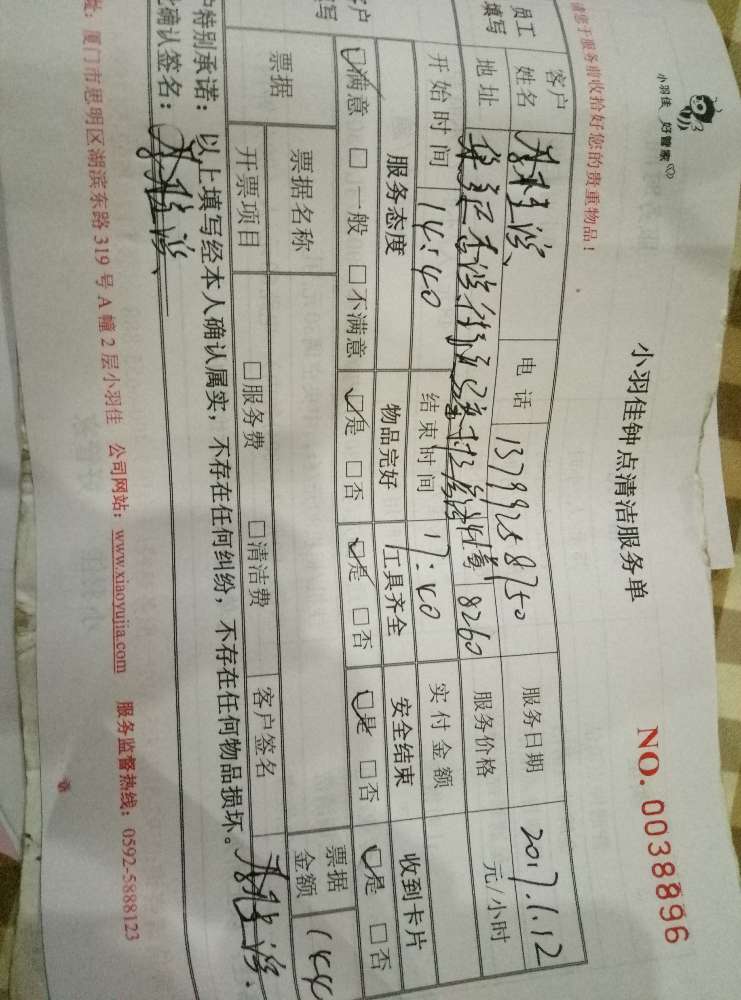 小羽佳 好管家
小羽佳钟点清洁服务单
NO. 0038896
请您于服务前收拾好您的贵重物品！
员工填写
客户姓名
电话 13799258750
服务日期 2017.1.12
地址
8260
服务价格 元/小时
开始时间 14:40
结束时间 17:40
实付金额
服务态度 物品完好 工具齐全 安全结束 收到卡片
☑满意 □一般 □不满意 ☑是 □否 ☑是 □否 ☑是 □否 ☑是 □否
票据 票据名称 票据金额 144
开票项目 □服务费 □清洁费 客户签名
特别承诺：以上填写经本人确认属实，不存在任何纠纷，不存在任何物品损坏。
确认签名：
厦门市思明区湖滨东路319号A幢2层小羽佳 公司网站：www.xiaoyujia.com 服务监督热线：0592-5888123